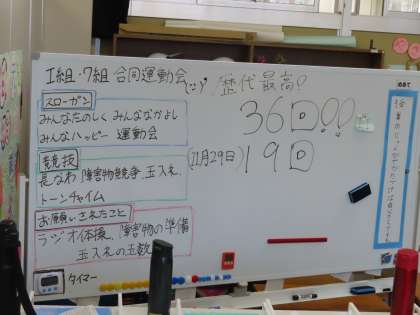 I組・7組 合同運動会
歴代最高!
スローガン
36回!!
みんなたのしく みんななかよし
みんなハッピー 運動会
競技
(11月29日) 19回
長なわ、障害物競争、玉入れ、
トーンチャイム
お願いされたこと
ラジオ体操、障害物の準備
玉入れの玉数え
タイマー